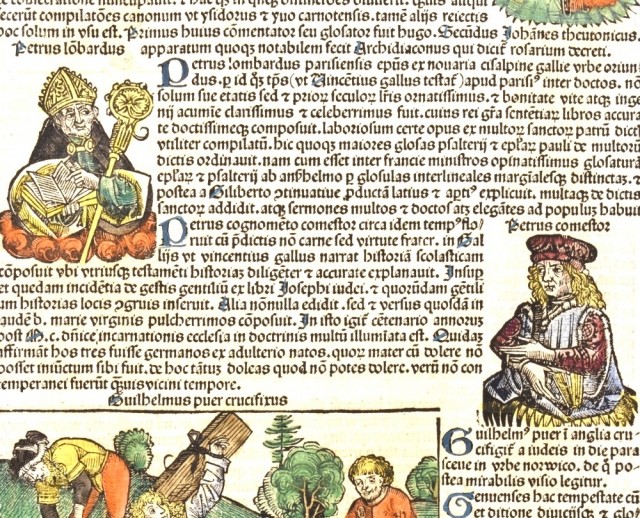 recerūt compilatões canonum vt ysidorus ⁊ yuo carnotensis. tamē alijs reiectis
hoc solum in vsu est. Primus huius cōmentator seu glosator fuit hugo. Secūdus Johānes theutonicus.
Petrus lōbardus apparatum quoqȝ notabilem fecit Archidiaconus qui dicit rosarium decreti.
Petrus lombardus parisiensis epūs ex nouaria cisalpine gallie vrbe oriun
dus. ꝑ id qs tps (vt Vincentius gallus testat) apud parisios inter doctos. nō
solum sue etatis sed ⁊ prior seculor lris ornatissimus. ⁊ bonitate vite atqȝ inge
nij acumīe clarissimus ⁊ celeberrimus fuit. cuius rei gra sentētiar libros accura
te doctissimeqȝ composuit. laboriosum certe opus ex multor sanctor patrū dictis
vtiliter compilatū. hic quoqȝ maiores glosas psalterij ⁊ eplar pauli de multorū
dictis ordinauit. nam cum esset inter francie ministros opinatissimus glosaturā
eplar ⁊ psalterij ab anshelmo ꝑ glosulas interlineales margīalesqȝ distinctas. ⁊
postea a Giliberto ꝯtinuatiue ꝓductam latius ⁊ aptꝰ explicuit. multaqȝ de dictis
sanctor addidit. atqȝ sermones multos ⁊ doctos atqȝ elegātes ad populū habuit
Petrus cognomēto comestor circa idem tempꝰ flo/ Petrus comestor
ruit cū p̄dictis nō carne sed virtute frater. in Gal
lijs vt vincentius gallus narrat historiā scolasticam
cōposuit vbi vtriusqȝ testamēti historias diligēter ⁊ accurate explanauit. Insuꝑ
et quedam incidētia de gestis gentiliū ex libri Josephi iudei. ⁊ quorūdam gētili
um historias locis ꝯgruis inseruit. Alia nōnulla edidit. sed ⁊ versus quosdā in
laudē b. marie virginis pulcherrimos cōposuit. In isto igit cētenario annorum
post M. c. dn̄ice incarnationis ecclesia in doctrinis multū illumīata est. Quidaȝ
affirmāt hos tres fuisse germanos ex adulterio natos. quor mater cū dolere nō
posset iniūctum sibi fuit. de hoc tātuȝ doleas quod nō potes dolere. verū nō con
temperanei fuerūt qȝuis vicini tempore.
Guilhelmus puer crucifixus
Guilhelmꝰ puer ī anglia cru
cifigit a iudeis in die para
sceue in vrbe norwico. de q̄ po
stea mirabilis visio legitur.
Genuenses hac tempestate cū
et ditione diuicijsqȝ ⁊ glo